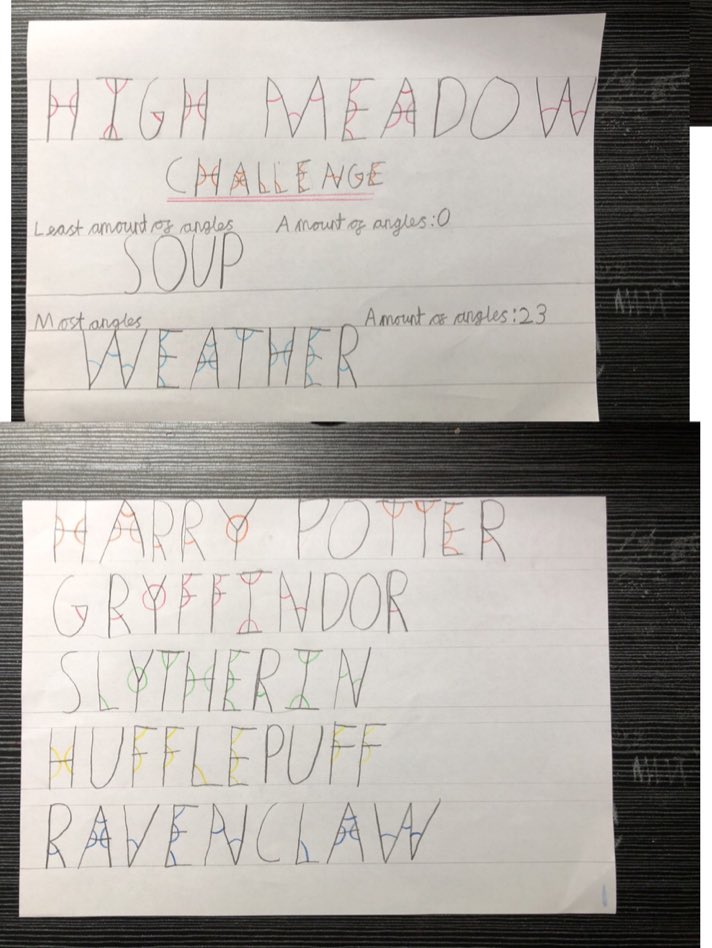 HIGH MEADOW
CHALLENGE
Least amount of angles Amount of angles:0
SOUP
Most angles Amount of angles:23
WEATHER
HARRY POTTER
GRYFFINDOR
SLYTHERIN
HUFFLEPUFF
RAVENCLAW